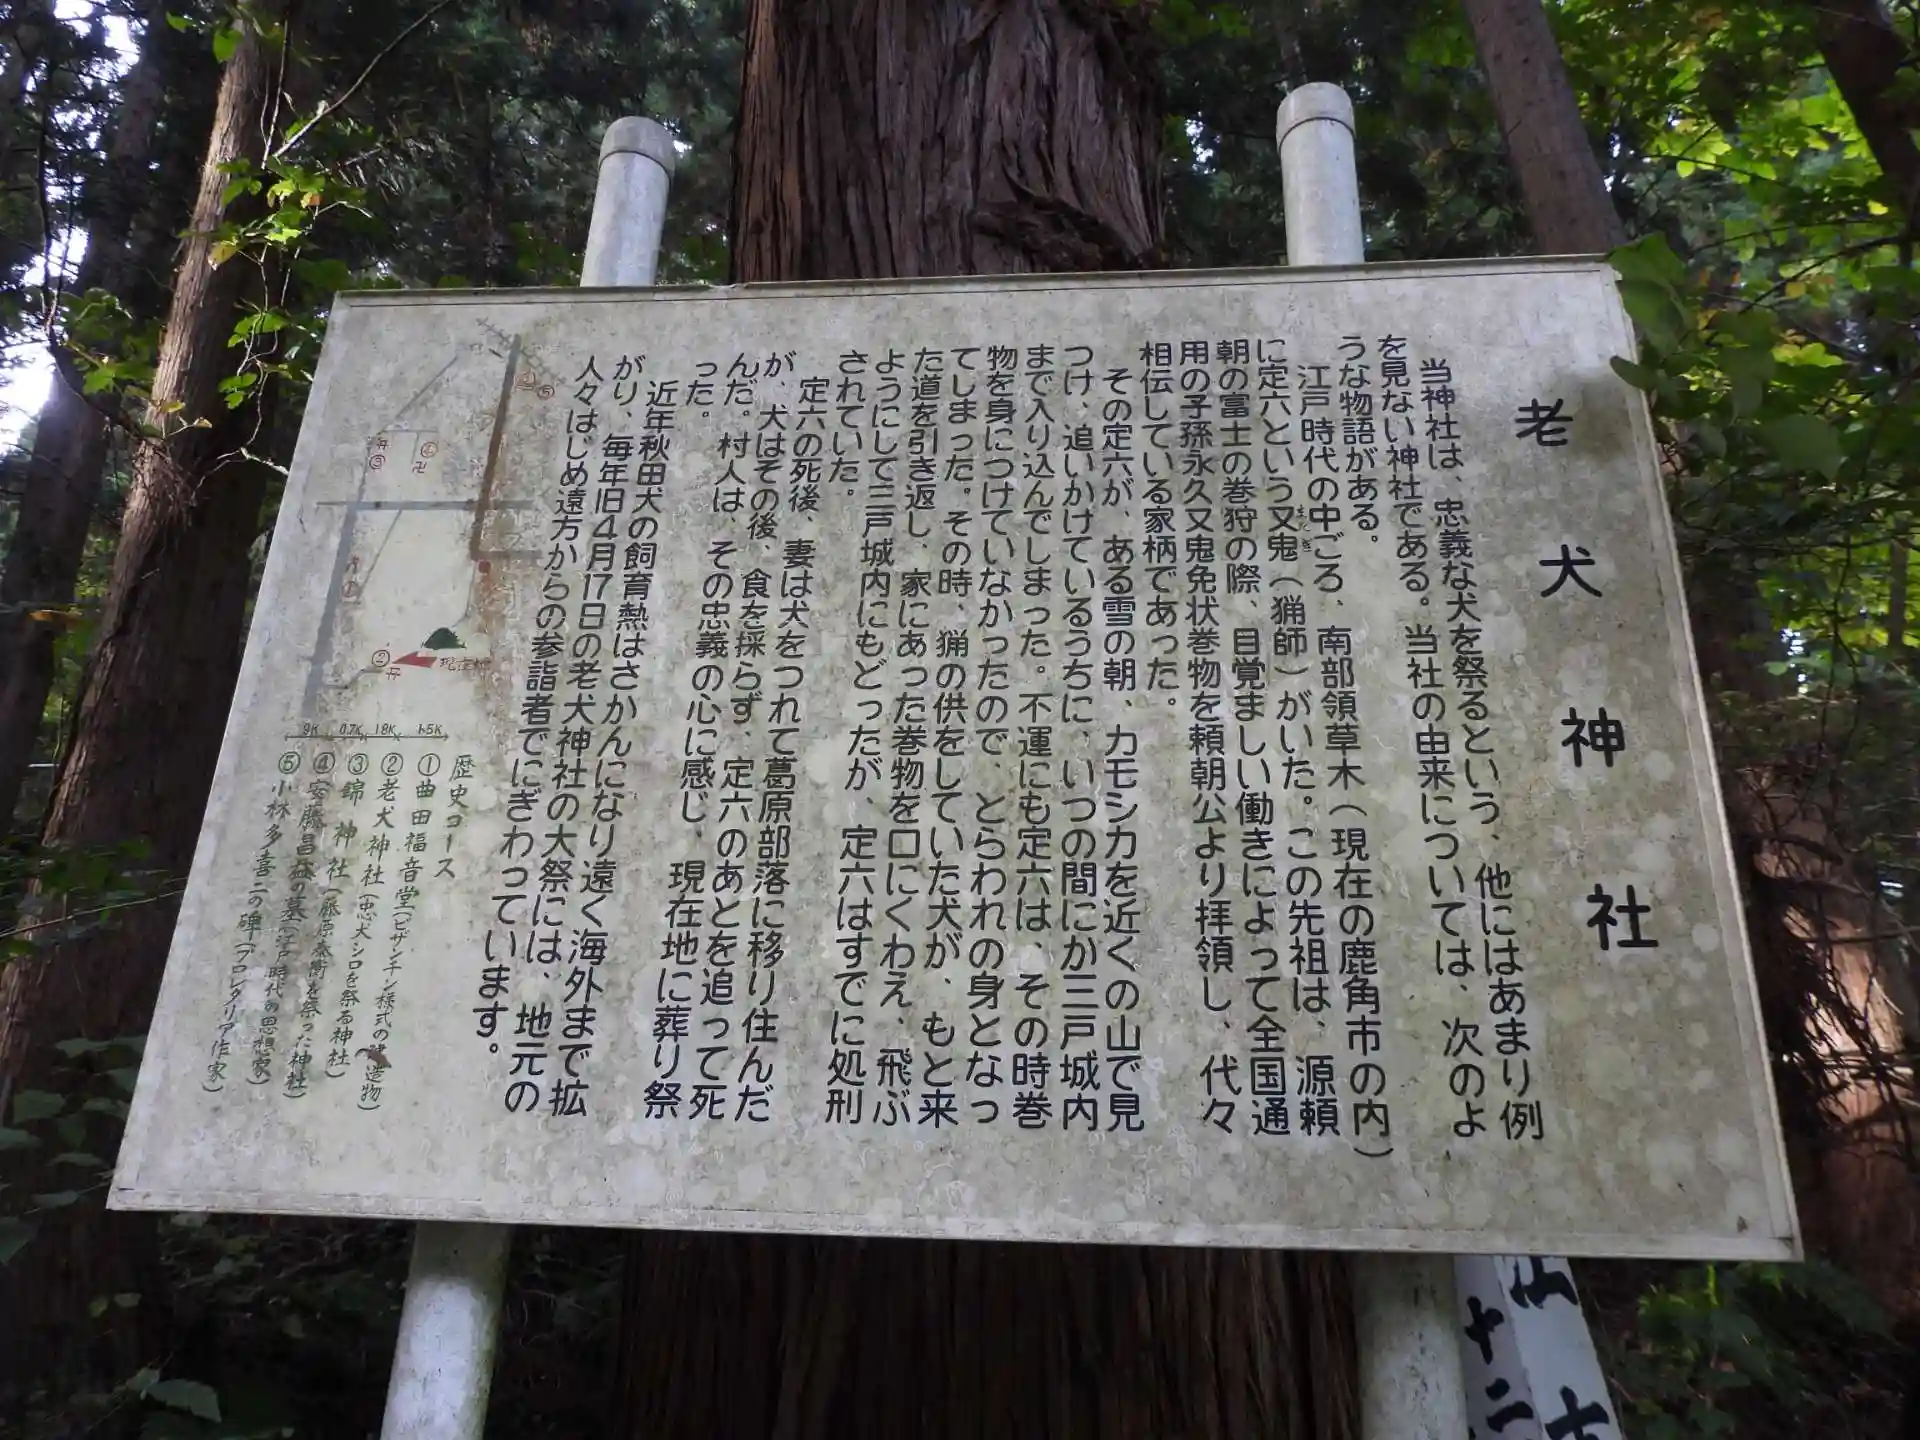 老犬神社
当神社は、忠義な犬を祭るという、他にはあまり例
を見ない神社である。当社の由来については、次のよ
うな物語がある。
江戸時代の中ごろ、南部領草木(現在の鹿角市の内)
に定六という又鬼(猟師)がいた。この先祖は、源頼
またぎ
朝の富士の巻狩の際、目覚ましい働きによって全国通
用の子孫永久又鬼免状巻物を頼朝公より拝領し、代々
相伝している家柄であった。
その定六が、ある雪の朝、カモシカを近くの山で見
つけ、追いかけているうちに、いつの間にか三戸城内
まで入り込んでしまった。不運にも定六は、その時巻
物を身につけていなかったので、とらわれの身となっ
てしまった。その時、猟の供をしていた犬が、もと来
た道を引き返し、家にあった巻物を口にくわえ、飛ぶ
ようにして三戸城内にもどったが、定六はすでに処刑
されていた。
定六の死後、妻は犬をつれて葛原部落に移り住んだ
が、犬はその後、食を採らず、定六のあとを追って死
んだ。村人は、その忠義の心に感じ、現在地に葬り祭
った。
近年秋田犬の飼育熱はさかんになり遠く海外まで拡
がり、毎年旧4月17日の老犬神社の大祭には、地元の
人々はじめ遠方からの参詣者でにぎわっています。
歴史コース
①曲田福音堂(ビザンチン様式の建造物)
②老犬神社(忠犬シロを祭る神社)
③錦神社(藤原泰衡を祭った神社)
④安藤昌益の墓(江戸時代の思想家)
⑤小林多喜二の碑(プロレタリア作家)
9K 0.7K 18K 1.5K
④
⑤
③
①
②
現在地
山
十二